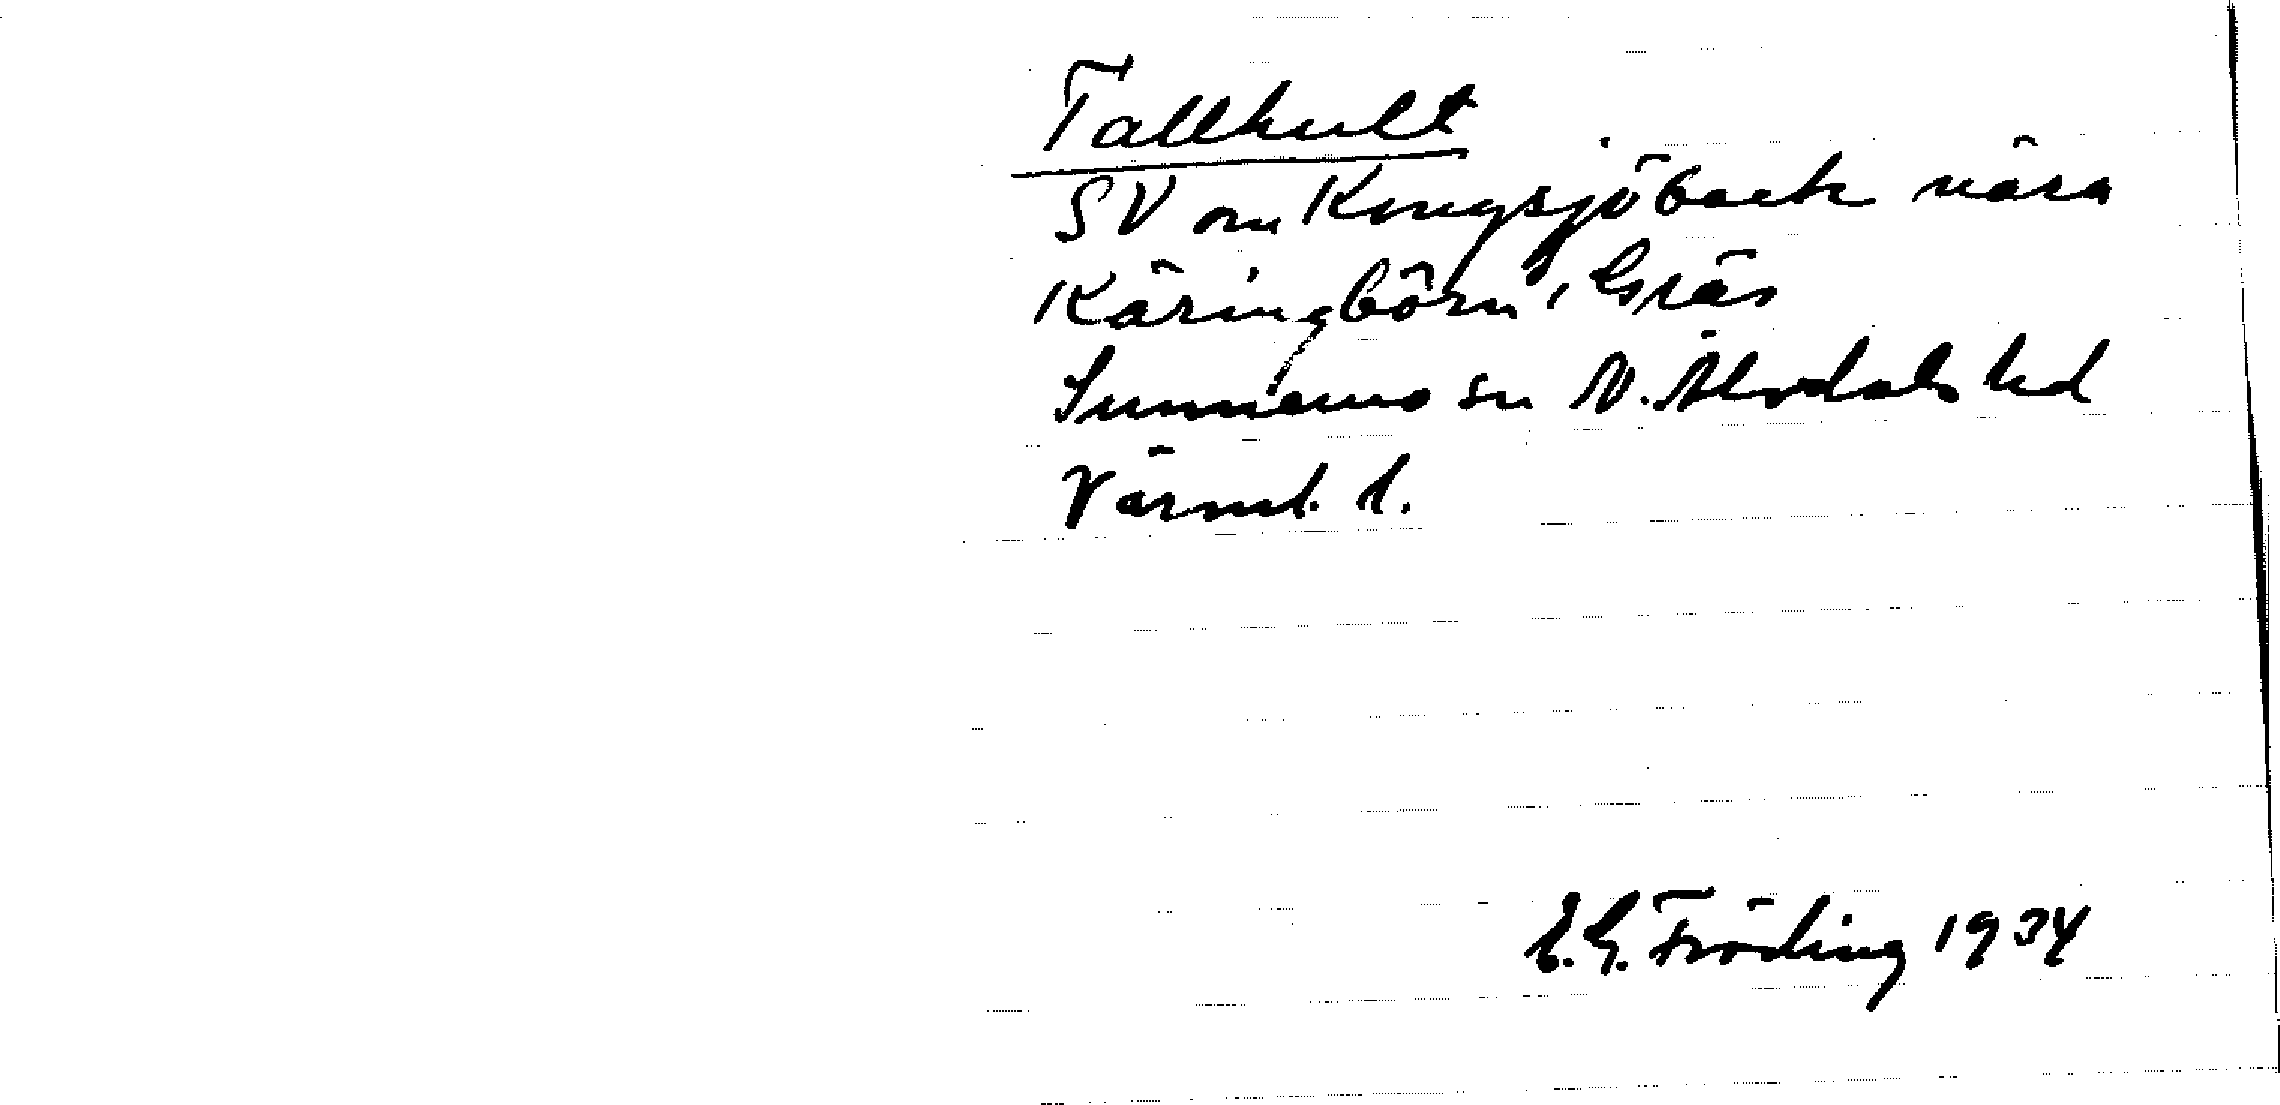 Tallhult
SV om Kungsjöback nära
Käringbörn, Gräs
Sunnemo sn N. Älvdals hd
Värml. l.
E.G. Fröding 1934